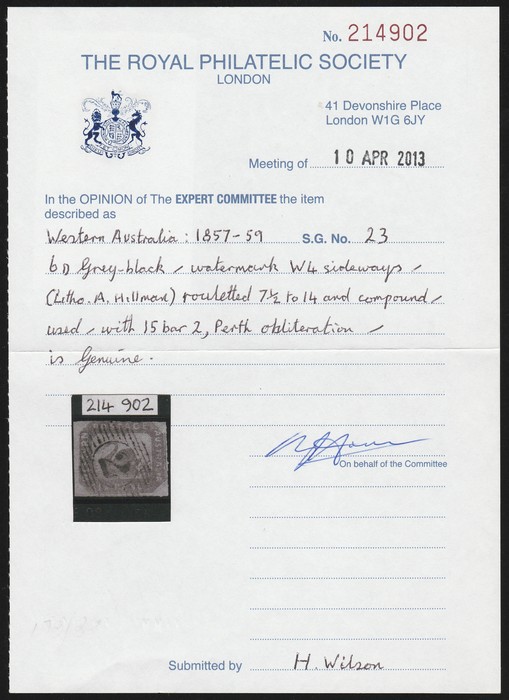 No. 214902
THE ROYAL PHILATELIC SOCIETY
LONDON
41 Devonshire Place
London W1G 6JY
Meeting of 10 APR 2013
In the OPINION of The EXPERT COMMITTEE the item
described as
Western Australia: 1857-59 S.G. No. 23
6D Grey-black, watermark W4 sideways,
(Litho. A. Hillman) rouletted 7½ to 14 and compound,
used, with 15 bar 2, Perth obliteration,
is Genuine.
214 902
2
On behalf of the Committee
Submitted by H. Wilson